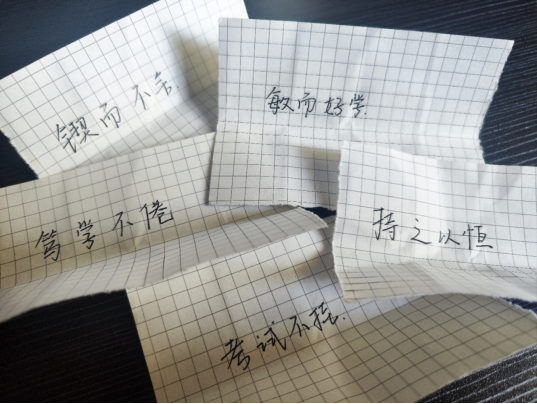 锲而不舍
敏而好学.
笃学不倦
持之以恒
考试不挂.